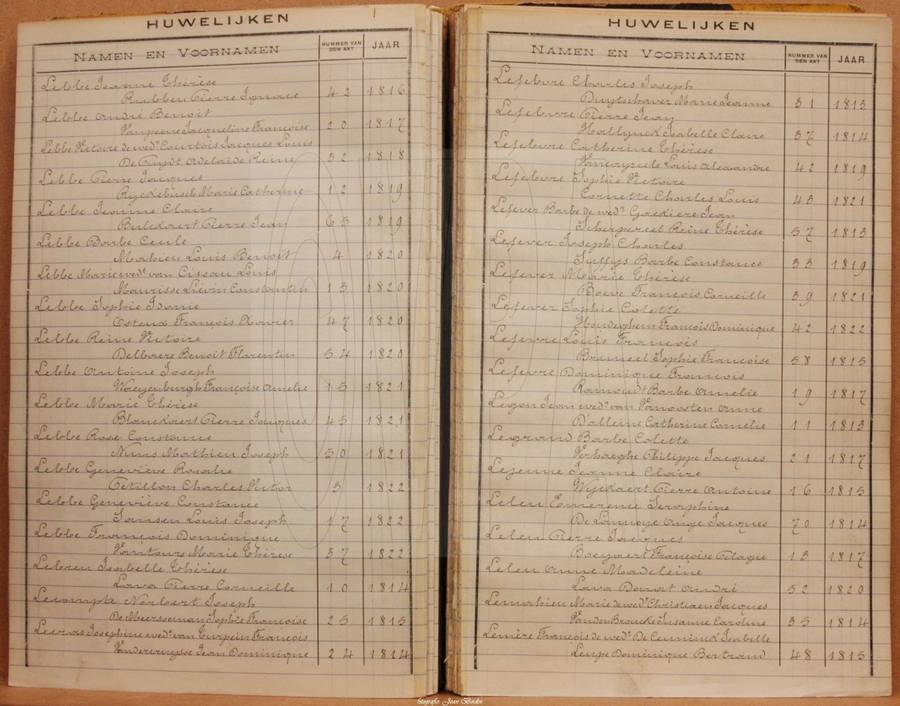 HUWELIJKEN
NAMEN EN VOORNAMEN NUMMER VAN DEN AKT JAAR
Lebbe Jeanne Thérèse
Rubben Pierre Ignace 42 1816
Lebbe André Benoit
Jacqueline Françoise 20 1817
Lebbe Victoire de wed. Courtois Jacques Louis
De Tuydt Adelaïde Reine 32 1818
Lebbe Pierre Jacques
Ryckebusch Marie Catherine 12 1819
Lebbe Jeanne Claire
Bulckaert Pierre Jean 63 1819
Lebbe Barbe Cecile
Mahieu Louis Benoit 4 1820
Lebbe Marie wed. van Cissau Louis
Maurisse Liévin Constantin 3 1820
Lebbe Sophie Idonie
Osteux François Xavier 47 1820
Lebbe Reine Victoire
Delbaere Benoit Florentin 54 1820
Lebbe Antoine Joseph
Waeyenburgh Françoise Amelie 15 1821
Lebbe Marie Thérèse
Blanckaert Pierre Jacques 45 1821
Lebbe Rose Constance
Nuns Mathieu Joseph 50 1821
Lebbe Geneviève Rosalie
Petillon Charles Victor 5 1822
Lebbe Geneviève Constance
Jansen Louis Joseph 17 1822
Lebbe François Dominique
Vantours Marie Thérèse 37 1822
Isabelle Thérèse
Lava Pierre Corneille 10 1814
Lecompte Norbert Joseph
De Meersseman Sophie Françoise 25 1815
Josephine wed. van Turpein François
Jean Dominique 24 1814
HUWELIJKEN
NAMEN EN VOORNAMEN NUMMER VAN DEN AKT JAAR
Lefebvre Charles Joseph
Duytschaver Marie Jeanne 31 1813
Lefebvre Pierre Jean
Hallynck Isabelle Claire 37 1814
Lefebvre Catherine Thérèse
Louis Alexandre 42 1819
Lefebvre Sophie Victoire
Cornette Charles Louis 43 1821
Lefever Barbe de wed. Jean
Schergereel Reine Thérèse 37 1813
Lefever Joseph Charles
Suffys Barbe Constance 33 1819
Lefever Marie Thérèse
Boeve François Corneille 39 1821
Lefever Sophie Colette
François Dominique 42 1822
Lefevre Louis François
Bruneel Sophie Françoise 58 1815
Lefevre Dominique François
Ramoudt Barbe Amelie 19 1817
Legon Jean wed. van Vanoosten Anne
Dalleins Catherine Cornelie 11 1813
Legrand Barbe Colette
Verhaeghe Philippe Jacques 21 1817
Lejeune Jeanne Claire
Wyckaert Pierre Antoine 16 1815
Leleu Seraphine
De Lannoye Ange Jacques 70 1814
Leleu Pierre Jacques
Boeyaert Françoise Pelagie 13 1817
Leleu Anne Madeleine
Lava Benoit André 52 1820
Lemahieu Marie de wed. Christiaen Jacques
Vanden Broucke Susanne Caroline 35 1814
Lemire François de wed. De Ceuninck Isabelle
Leupe Dominique Bertrand 48 1815
fotografie Jean Bordin